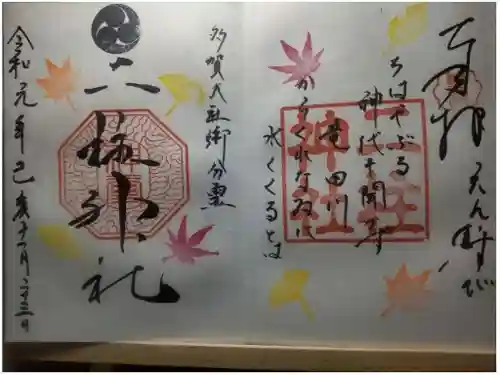 奉拝 えん結び
ちはやぶる
神代も聞寿
竜田川
からくれなゐに
水くくるとは
三柱
神社
多賀大社御分霊
柱神社
令和元年己亥十一月二十三日